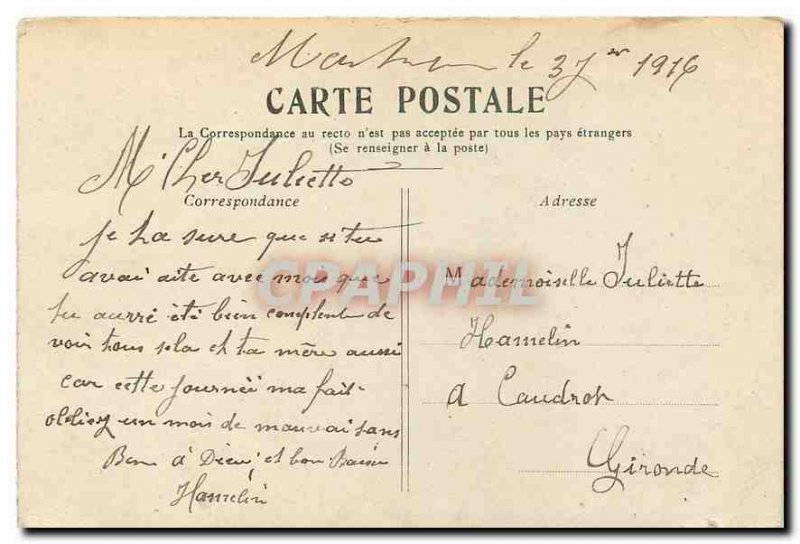 le 3 1916
CARTE POSTALE
La Correspondance au recto n'est pas acceptée par tous les pays étrangers
(Se renseigner à la poste)
M Cher Juliette
Correspondance
je ta sure que si tu
avai aite avec moi que
tu aurré été bien complent de
voir tous sela et ta mère aussi
car cette journeé ma fait
un mois de mauvai sans
Bon à Dieu et bon Baisé
Hamelin
Adresse
Mademoiselle Juliette
Hamelin
a Caudrot
Gironde
CPAPHIL